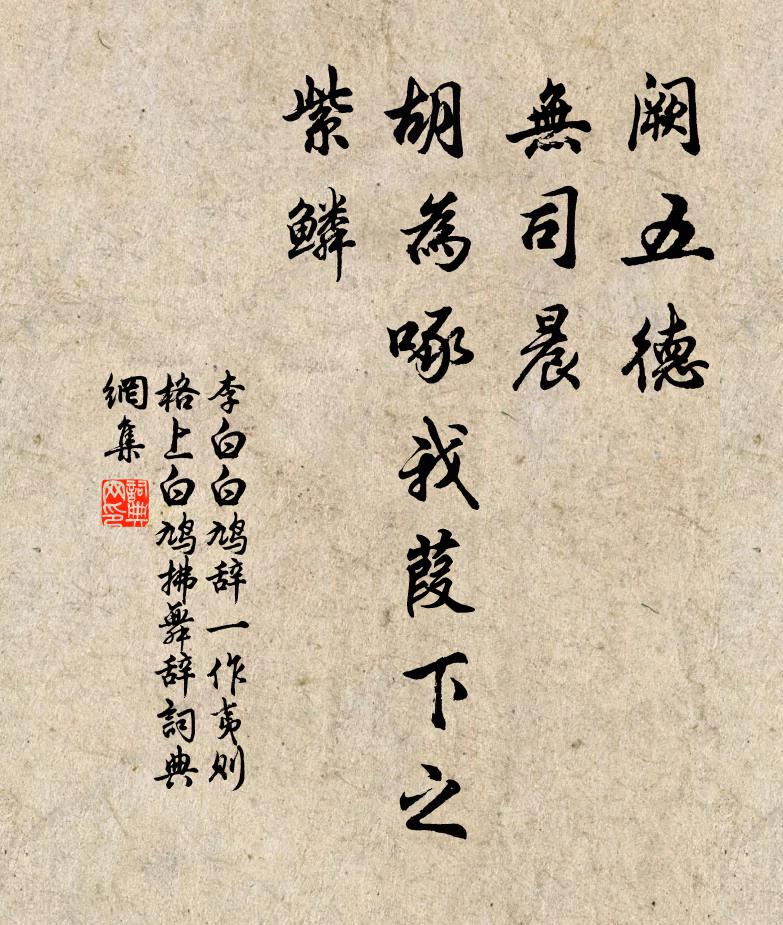 闕五德
無司晨
胡為啄我葭下之
紫鱗
李白白鳩辞一作夷則
格上白鳩拂舞辞詞典
網集
詞典
网印